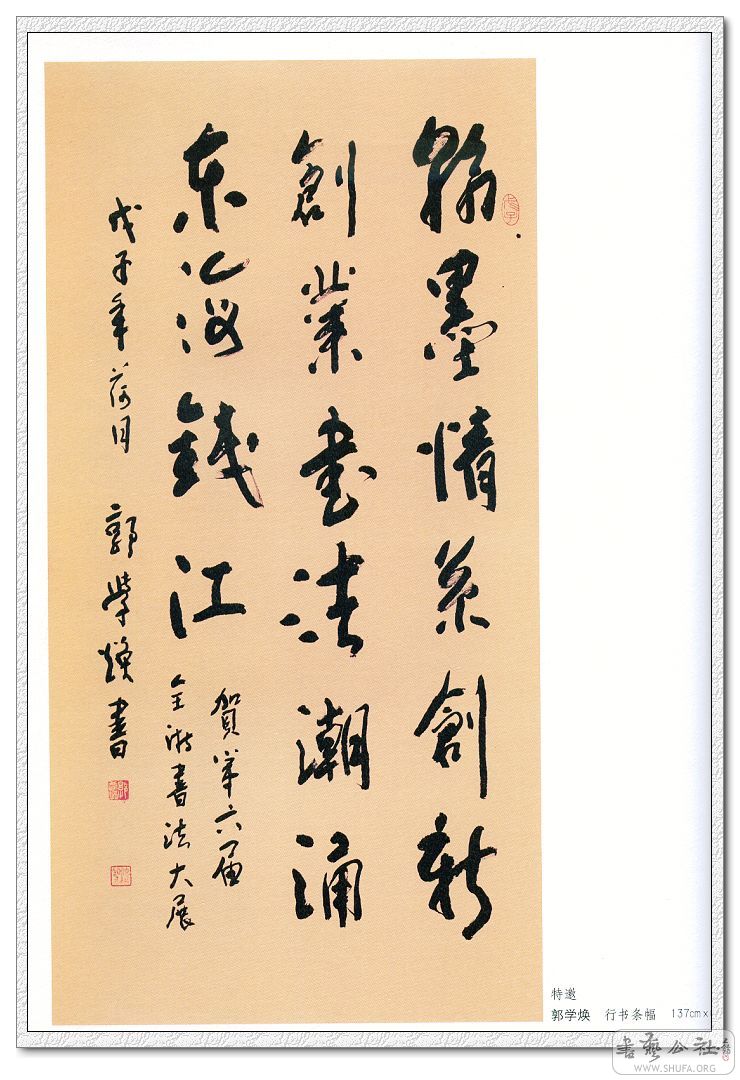 翰墨情系創新
創業書法潮涌
东海錢江
賀第六届
全浙書法大展
戊子年荷月 郭學焕書
特邀
郭学焕 行书条幅 137cm×
書藝公社
WWW.SHUFA.ORG